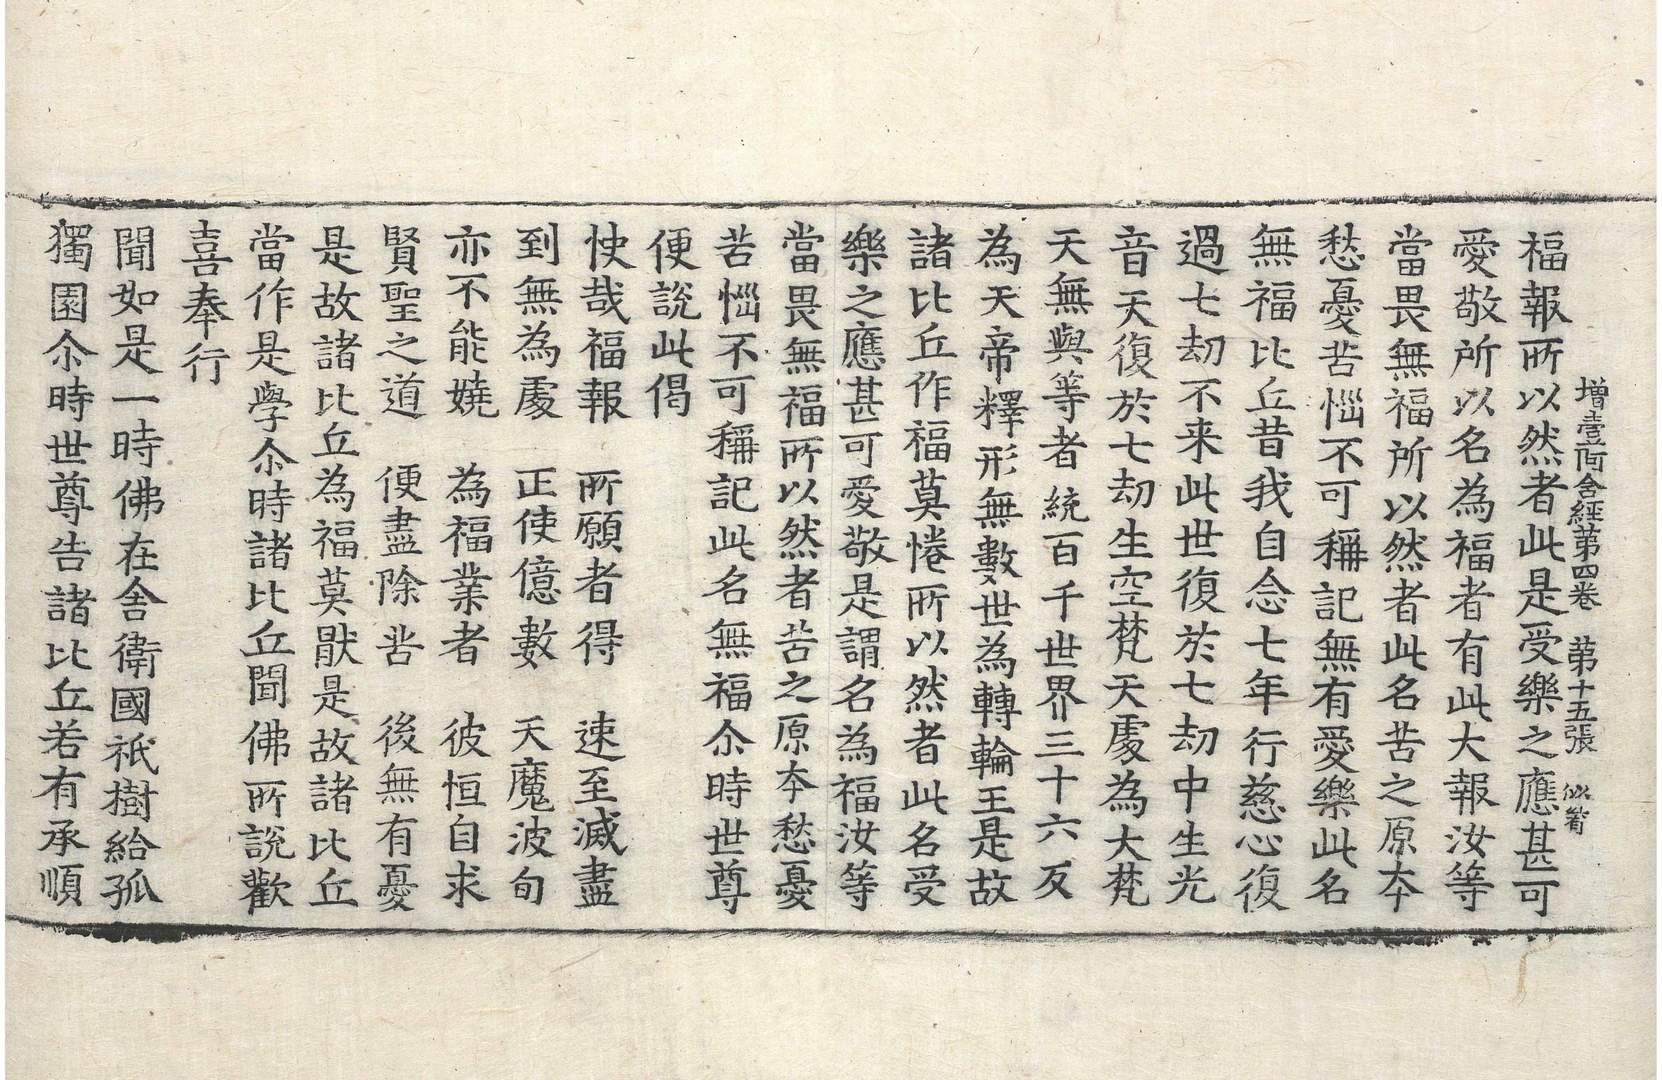 增壹阿含經第四卷　第十五張　似㒵
福報所以然者此是受樂之應甚可
愛敬所以名為福者有此大報汝等
當畏無福所以然者此名苦之原夲
愁憂苦惱不可稱記無有愛樂此名
無福比丘昔我自念七年行慈心復
過七劫不来此世復於七劫中生光
音天復於七劫生空梵天處為大梵
天無與等者統百千世界三十六反
為天帝釋形無數世為轉輪王是故
諸比丘作福莫惓所以然者此名受
樂之應甚可愛敬是謂名為福汝等
當畏無福所以然者苦之原夲愁憂
苦惱不可稱記此名無福尒時世尊
便說此偈
快哉福報　所願者得　速至滅盡
到無為處　正使億數　天魔波旬
亦不能嬈　為福業者　彼恒自求
賢聖之道　便盡除苦　後無有憂
是故諸比丘為福莫猒是故諸比丘
當作是學尒時諸比丘聞佛所說歡
喜奉行
聞如是一時佛在舍衛國祇樹給孤
獨園尒時世尊告諸比丘若有承順